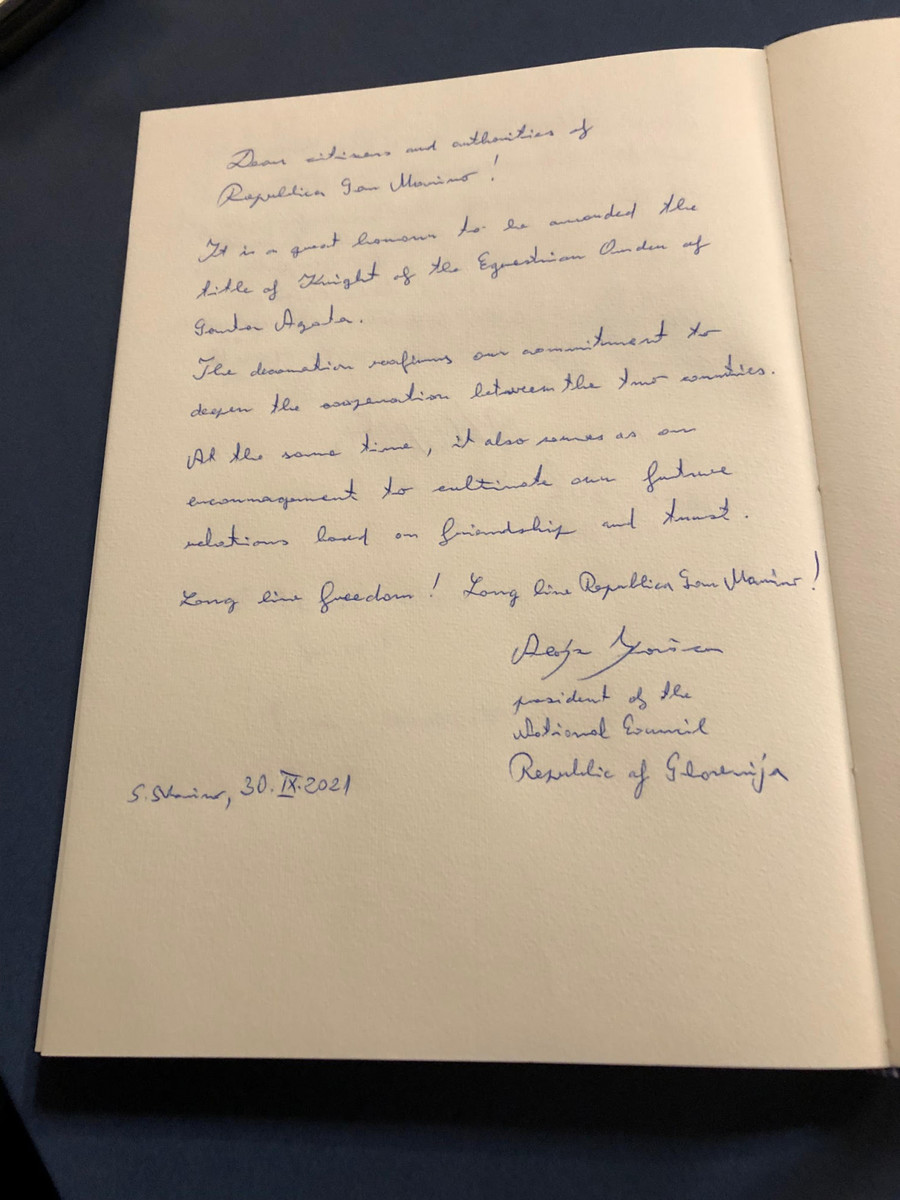 Dear citizens and authorities of
Republica San Marino!
It is a great honour to be awarded the
title of Knight of the Equestrian Order of
Santa Agata.
The decoration reafirms our commitment to
deepen the cooperation between the two countries.
At the same time, it also serves as an
encouragement to cultivate our future
relations based on friendship and trust.
Long live freedom! Long live Republica San Marino!
Alojz Kovšca
president of the
National Council
Republic of Slovenija
S. Marino, 30. IX. 2021